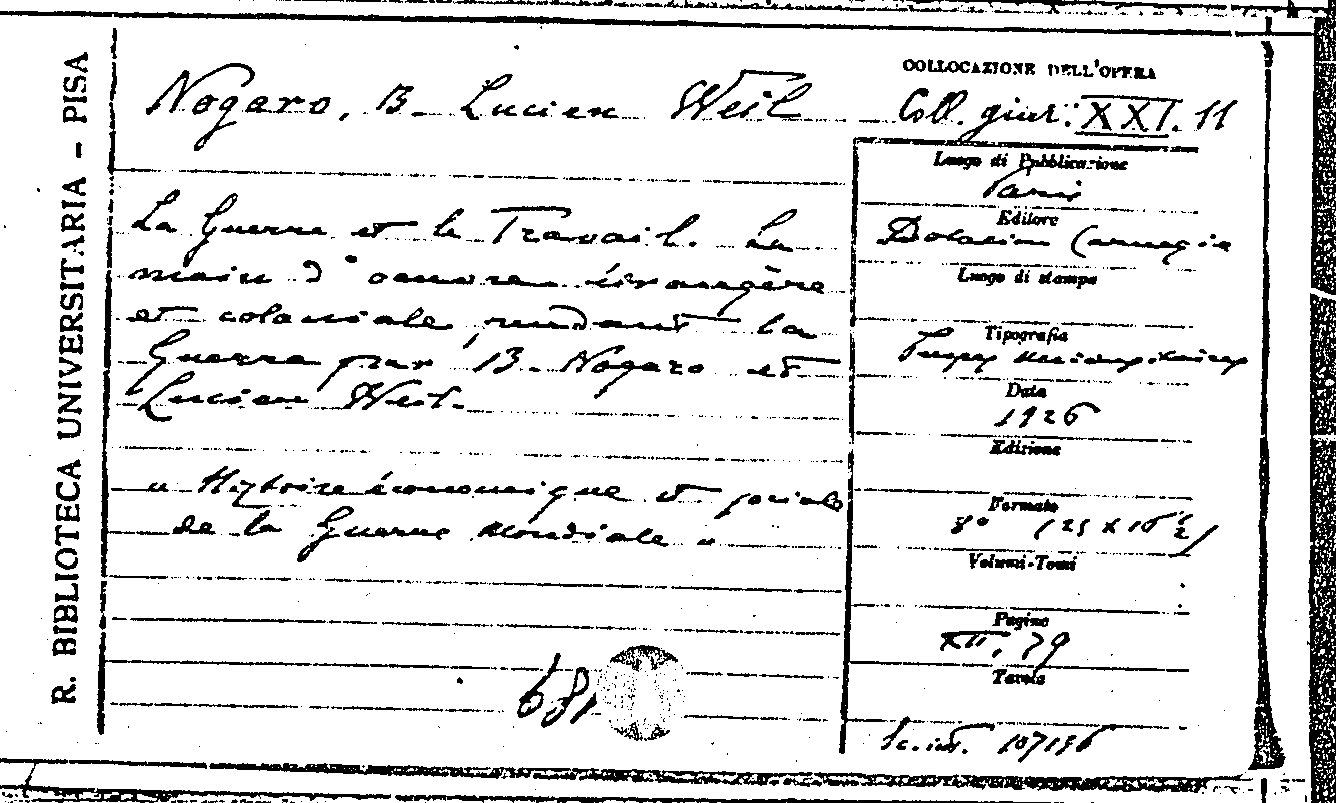 R. BIBLIOTECA UNIVERSITARIA - PISA
Nogaro, B. Lucien Weil
COLLOCAZIONE DELL'OPERA
Coll. giur: XXI. 11
La Guerre et le Travail. La
main d'oeuvre étrangère
et coloniale pendant la
Guerre par B. Nogaro et
Lucien Weil.
« Histoire économique et sociale
de la Guerre Mondiale »
Luogo di Pubblicazione
Paris
Editore
Dotation Carnegie
Luogo di stampa
Tipografia
Data
1926
Edizione
Formato
8° (25 x 16 1/2)
Volumi-Tomi
Pagine
XII, 79
Tavole
107136